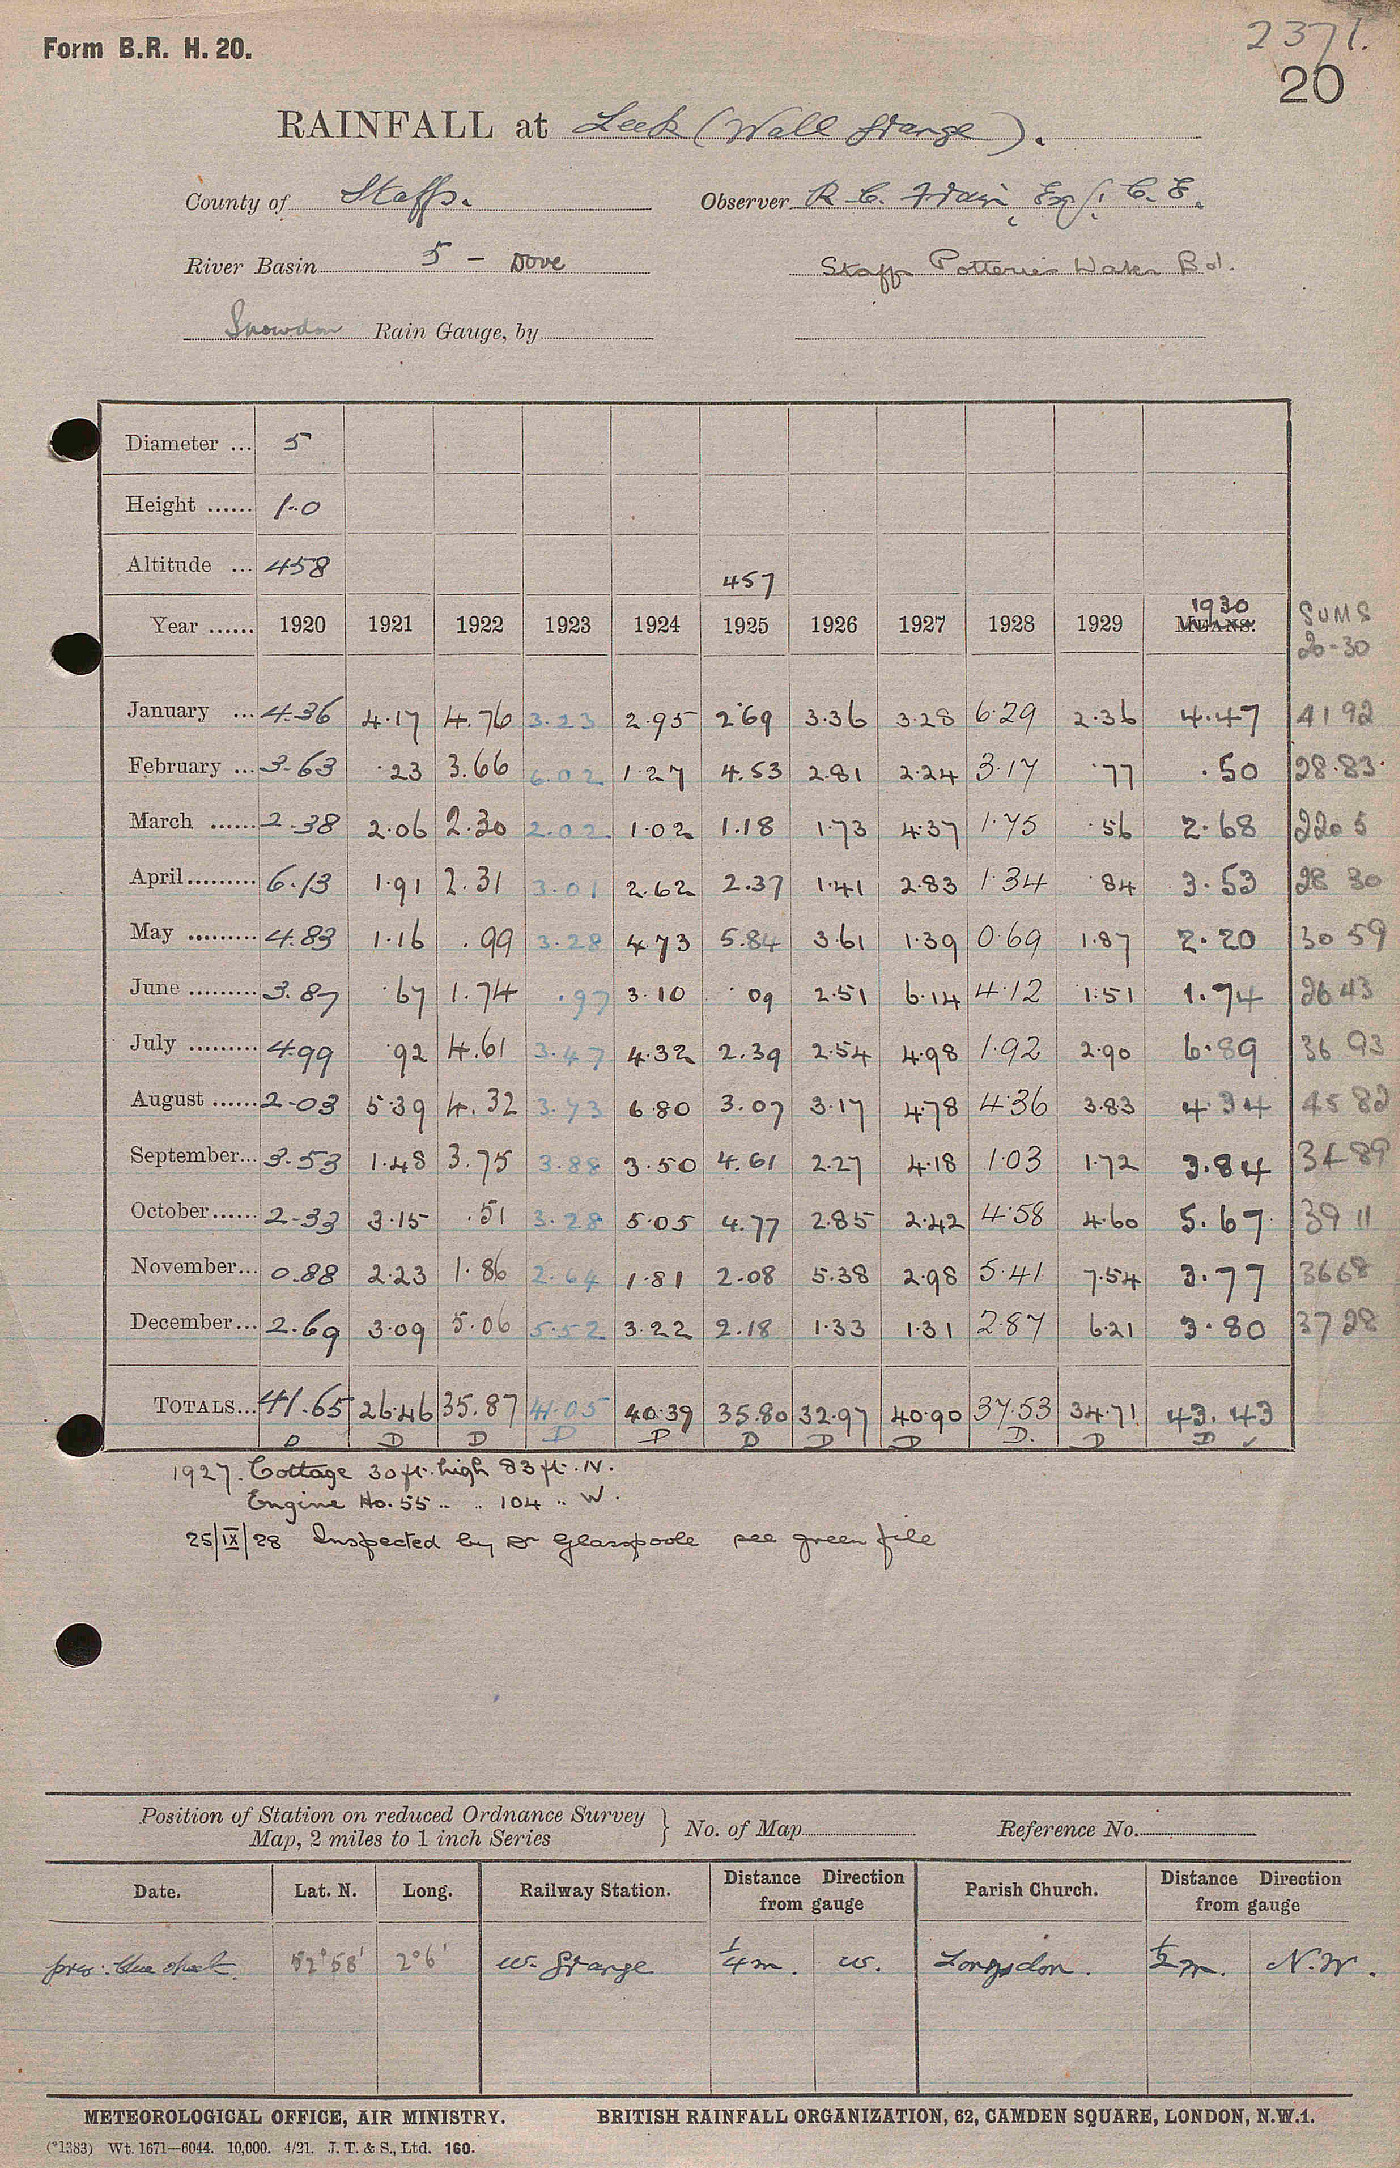 Form B.R. H. 20.
2371.
20
RAINFALL at Leek (Wall Grange).
County of Staffs. Observer R. C. Frain, Esq., C. E.
River Basin 5 - Dove Staffs Potteries Water Bd.
Snowdon Rain Gauge, by
Diameter ... 5
Height ...... 1.0
Altitude ... 458 457
Year ...... 1920 1921 1922 1923 1924 1925 1926 1927 1928 1929 1930 MEANS. SUMS 20-30
January ... 4.36 4.17 4.76 3.23 2.95 2.69 3.36 3.28 6.29 2.36 4.47 41 92
February ... 3.63 .23 3.66 6.02 1.27 4.53 2.81 2.24 3.17 .77 .50 28.83
March ...... 2.38 2.06 2.30 2.02 1.02 1.18 1.73 4.37 1.75 .56 2.68 22 05
April ......... 6.13 1.91 2.31 3.01 2.62 2.37 1.41 2.83 1.34 .84 3.53 28 30
May ......... 4.83 1.16 .99 3.28 4.73 5.84 3.61 1.39 0.69 1.87 2.20 30 59
June ......... 3.87 .67 1.74 .97 3.10 .09 2.51 6.14 4.12 1.51 1.74 26 43
July ......... 4.99 .92 4.61 3.47 4.32 2.39 2.54 4.98 1.92 2.90 6.89 36 93
August ...... 2.03 5.39 4.32 3.73 6.80 3.07 3.17 4.78 4.36 3.83 4.34 45 82
September... 3.53 1.48 3.75 3.88 3.50 4.61 2.27 4.18 1.03 1.72 3.84 34 89
October...... 2.33 3.15 .51 3.28 5.05 4.77 2.85 2.42 4.58 4.60 5.67 39 11
November... 0.88 2.23 1.86 2.64 1.81 2.08 5.38 2.98 5.41 7.54 3.77 36 68
December... 2.69 3.09 5.06 5.52 3.22 2.18 1.33 1.31 2.87 6.21 3.80 37 28
TOTALS... 41.65 26.46 35.87 41.05 40.39 35.80 32.97 40.90 37.53 34.71 43.43
D D D D D D D D D. D D ✓
1927. Cottage 30 ft. high 83 ft. N.
Engine Ho. 55 .. .. 104 .. W.
25/IX/28 Inspected by Dr Glasspoole see green file
Position of Station on reduced Ordnance Survey Map, 2 miles to 1 inch Series } No. of Map Reference No.
Date. Lat. N. Long. Railway Station. Distance Direction from gauge Parish Church. Distance Direction from gauge
prev. blue sheet. 52°58' 2°6' W. Grange 1/4 m. W. Longsdon. 1/2 m. N.W.
METEOROLOGICAL OFFICE, AIR MINISTRY. BRITISH RAINFALL ORGANIZATION, 62, CAMDEN SQUARE, LONDON, N.W.1.
(*1383) Wt. 1671—6044. 10,000. 4/21. J. T. & S., Ltd. 160.